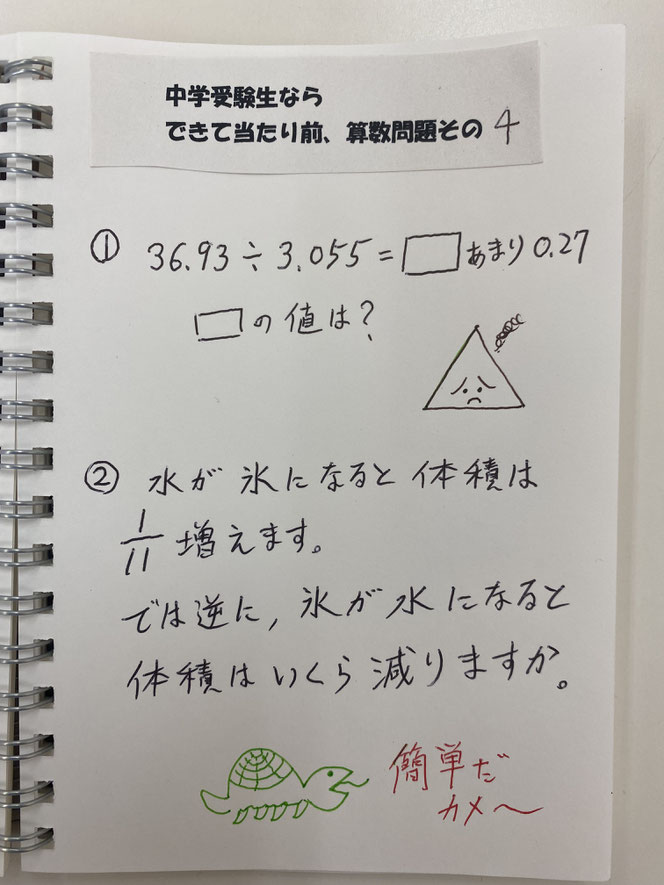 中学受験生なら
できて当たり前、算数問題その4
① 36.93÷3.055=□あまり0.27
□の値は?
② 水が氷になると体積は
1/11増えます。
では逆に,氷が水になると
体積はいくら減りますか。
簡単だ
カメ〜